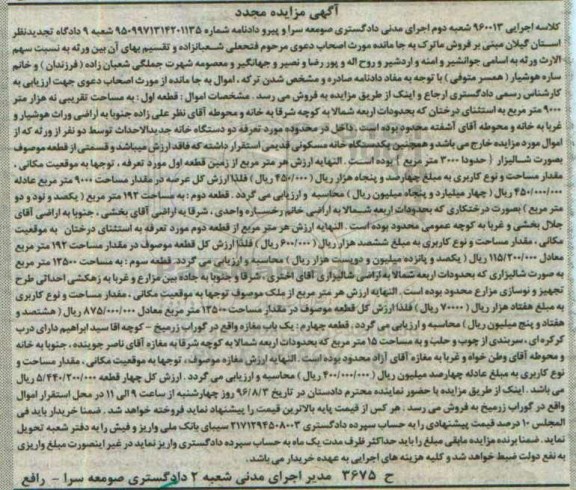 آگهی مزایده مجدد
کلاسه اجرایی ۹۶۰۰۱۳ شعبه دوم اجرای مدنی دادگستری صومعه سرا و پیرو دادنامه شماره ۹۵۰۹۹۷۱۳۱۴۲۰۱۱۳۵ شعبه ۹ دادگاه تجدیدنظر
استان گیلان مبنی بر فروش ماترک به جا مانده مورث اصحاب دعوی مرحوم فتحعلی شعبانزاده و تقسیم بهای آن بین ورثه به نسبت سهم
الارث ورثه به اسامی جوانشیر و امنه و اردشیر و روح اله و پور رضا و نصیر و جهانگیر و معصومه شهرت جملگی شعبان زاده ( فرزندان ) و خانم
ساره هوشیار ( همسر متوفی ) با توجه به مفاد دادنامه صادره و مشخص شدن ترکه ، اموال به جا مانده از مورث اصحاب دعوی جهت ارزیابی به
کارشناس رسمی دادگستری ارجاع و اینک از طریق مزایده به فروش می رسد . مشخصات اموال : قطعه اول : به مساحت تقریبی نه هزار متر
۹۰۰۰ متر مربع به استثنای درختان که بحدودات اربعه شمالا به کوچه شرقا به خانه و محوطه آقای نظر علی زاده جنوبا به اراضی وراث هوشیار و
غربا به خانه و محوطه آقای آشفته محدود بوده است . داخل در محدوده مورد تعرفه دو دستگاه خانه جدیدالاحداث توسط دو نفر از ورثه که از
اموال مورد مزایده خارج می باشد و همچنین یکدستگاه خانه مسکونی قدیمی استقرار داشته که فاقد ارزش میباشد و قسمتی از قطعه موصوف
بصورت شالیزار ( حدودا ۳۰۰۰ متر مربع ) بوده است . النهایه ارزش هر متر مربع از زمین قطعه اول مورد تعرفه ، توجها به موقعیت مکانی ،
مقدار مساحت و نوع کاربری به مبلغ چهارصد و پنجاه هزار ریال ( ۴۵۰/۰۰۰ ریال ) فلذا ارزش کل عرصه در مقدار مساحت ۹۰۰۰ متر مربع عادله
۴۵۰/۰۰۰/۰۰۰ ریال ( چهار میلیارد و پنجاه میلیون ریال ) محاسبه و ارزیابی می گردد . قطعه دوم : به مساحت ۱۹۲ متر مربع ( یکصد و نود و دو
متر مربع ) بصورت درختکاری که بحدودات اربعه شمالا به اراضی خانم رخساره واحدی ، شرقا به اراضی آقای بخشی ، جنوبا به اراضی آقای
جلال بخشی و غربا به کوچه عمومی محدود بوده است . النهایه ارزش هر متر مربع از قطعه دوم مورد تعرفه به استثنای درختان به موقعیت
مکانی ، مقدار مساحت و نوع کاربری به مبلغ ششصد هزار ریال ( ۶۰۰/۰۰۰ ریال ) فلذا ارزش کل قطعه موصوف در مقدار مساحت ۱۹۲ متر مربع
معادل ۱۱۵/۲۰۰/۰۰۰ ریال ( یکصد و پانزده میلیون و دویست هزار ریال ) محاسبه و ارزیابی می گردد . قطعه سوم : به مساحت ۱۲۵۰۰ متر مربع
به صورت شالیزاری که بحدودات اربعه شمالا به اراضی شالیزاری آقای اختری ، شرقا و جنوبا به جاده بین مزارع و غربا به زهکشی احداثی طرح
تجهیز و نوسازی مزارع محدود بوده است . النهایه ارزش هر متر مربع از ملک موصوف توجها به موقعیت مکانی ، مقدار مساحت و نوع کاربری
به مبلغ هفتاد هزار ریال ( ۷۰۰۰۰ ریال ) فلذا ارزش کل قطعه موصوف در مقدار مساحت ۱۲۵۰۰ متر مربع معادل ۸۷۵/۰۰۰/۰۰۰ ریال ( هشتصد و
هفتاد و پنج میلیون ریال ) محاسبه و ارزیابی می گردد . قطعه چهارم : یک باب مغازه واقع در گوراب زرمیخ - کوچه اقا سید ابراهیم دارای درب
کرکره ای ، سربندی از چوب و حلب و به مساحت ۱۵ متر مربع که بحدودات اربعه شمالا به کوچه شرقا به مغازه آقای ناصر جوینده ، جنوبا به خانه
و محوطه آقای وطن خواه و غربا به مغازه آقای آزاد محدود بوده است . النهایه ارزش مغازه موصوف ، توجها به موقعیت مکانی ، مقدار مساحت و
نوع کاربری به مبلغ عادله چهارصد میلیون ریال ( ۴۰۰/۰۰۰/۰۰۰ ریال ) محاسبه و ارزیابی می گردد . ارزش کل چهار قطعه ۵/۴۴۰/۲۰۰/۰۰۰ ریال
می باشد . اینک از طریق مزایده با حضور نماینده محترم دادستان در تاریخ ۹۶/۸/۳ روز چهارشنبه از ساعت ۹ الی ۱۱ در محل استقرار اموال
واقع در گوراب زرمیخ به فروش می رسد . هر کس از قیمت پایه بالاترین قیمت را پیشنهاد نماید فروخته خواهد شد . ضمنا خریدار باید فی
المجلس ۱۰ درصد قیمت پیشنهادی را به حساب سپرده دادگستری ۲۱۷۱۲۹۴۵۰۸۰۰۳ سیبای بانک ملی واریز و فیش را به دفتر شعبه تحویل
نماید . ضمنا برنده مزایده مابقی مبلغ را باید حداکثر ظرف مدت یک ماه به حساب سپرده دادگستری واریز نماید در غیر اینصورت مبلغ واریزی
به نفع دولت ضبط خواهد شد و کلیه هزینه های اجرایی به عهده خریدار می باشد .
ح ۳۶۷۵ مدیر اجرای مدنی شعبه ۲ دادگستری صومعه سرا - رافع